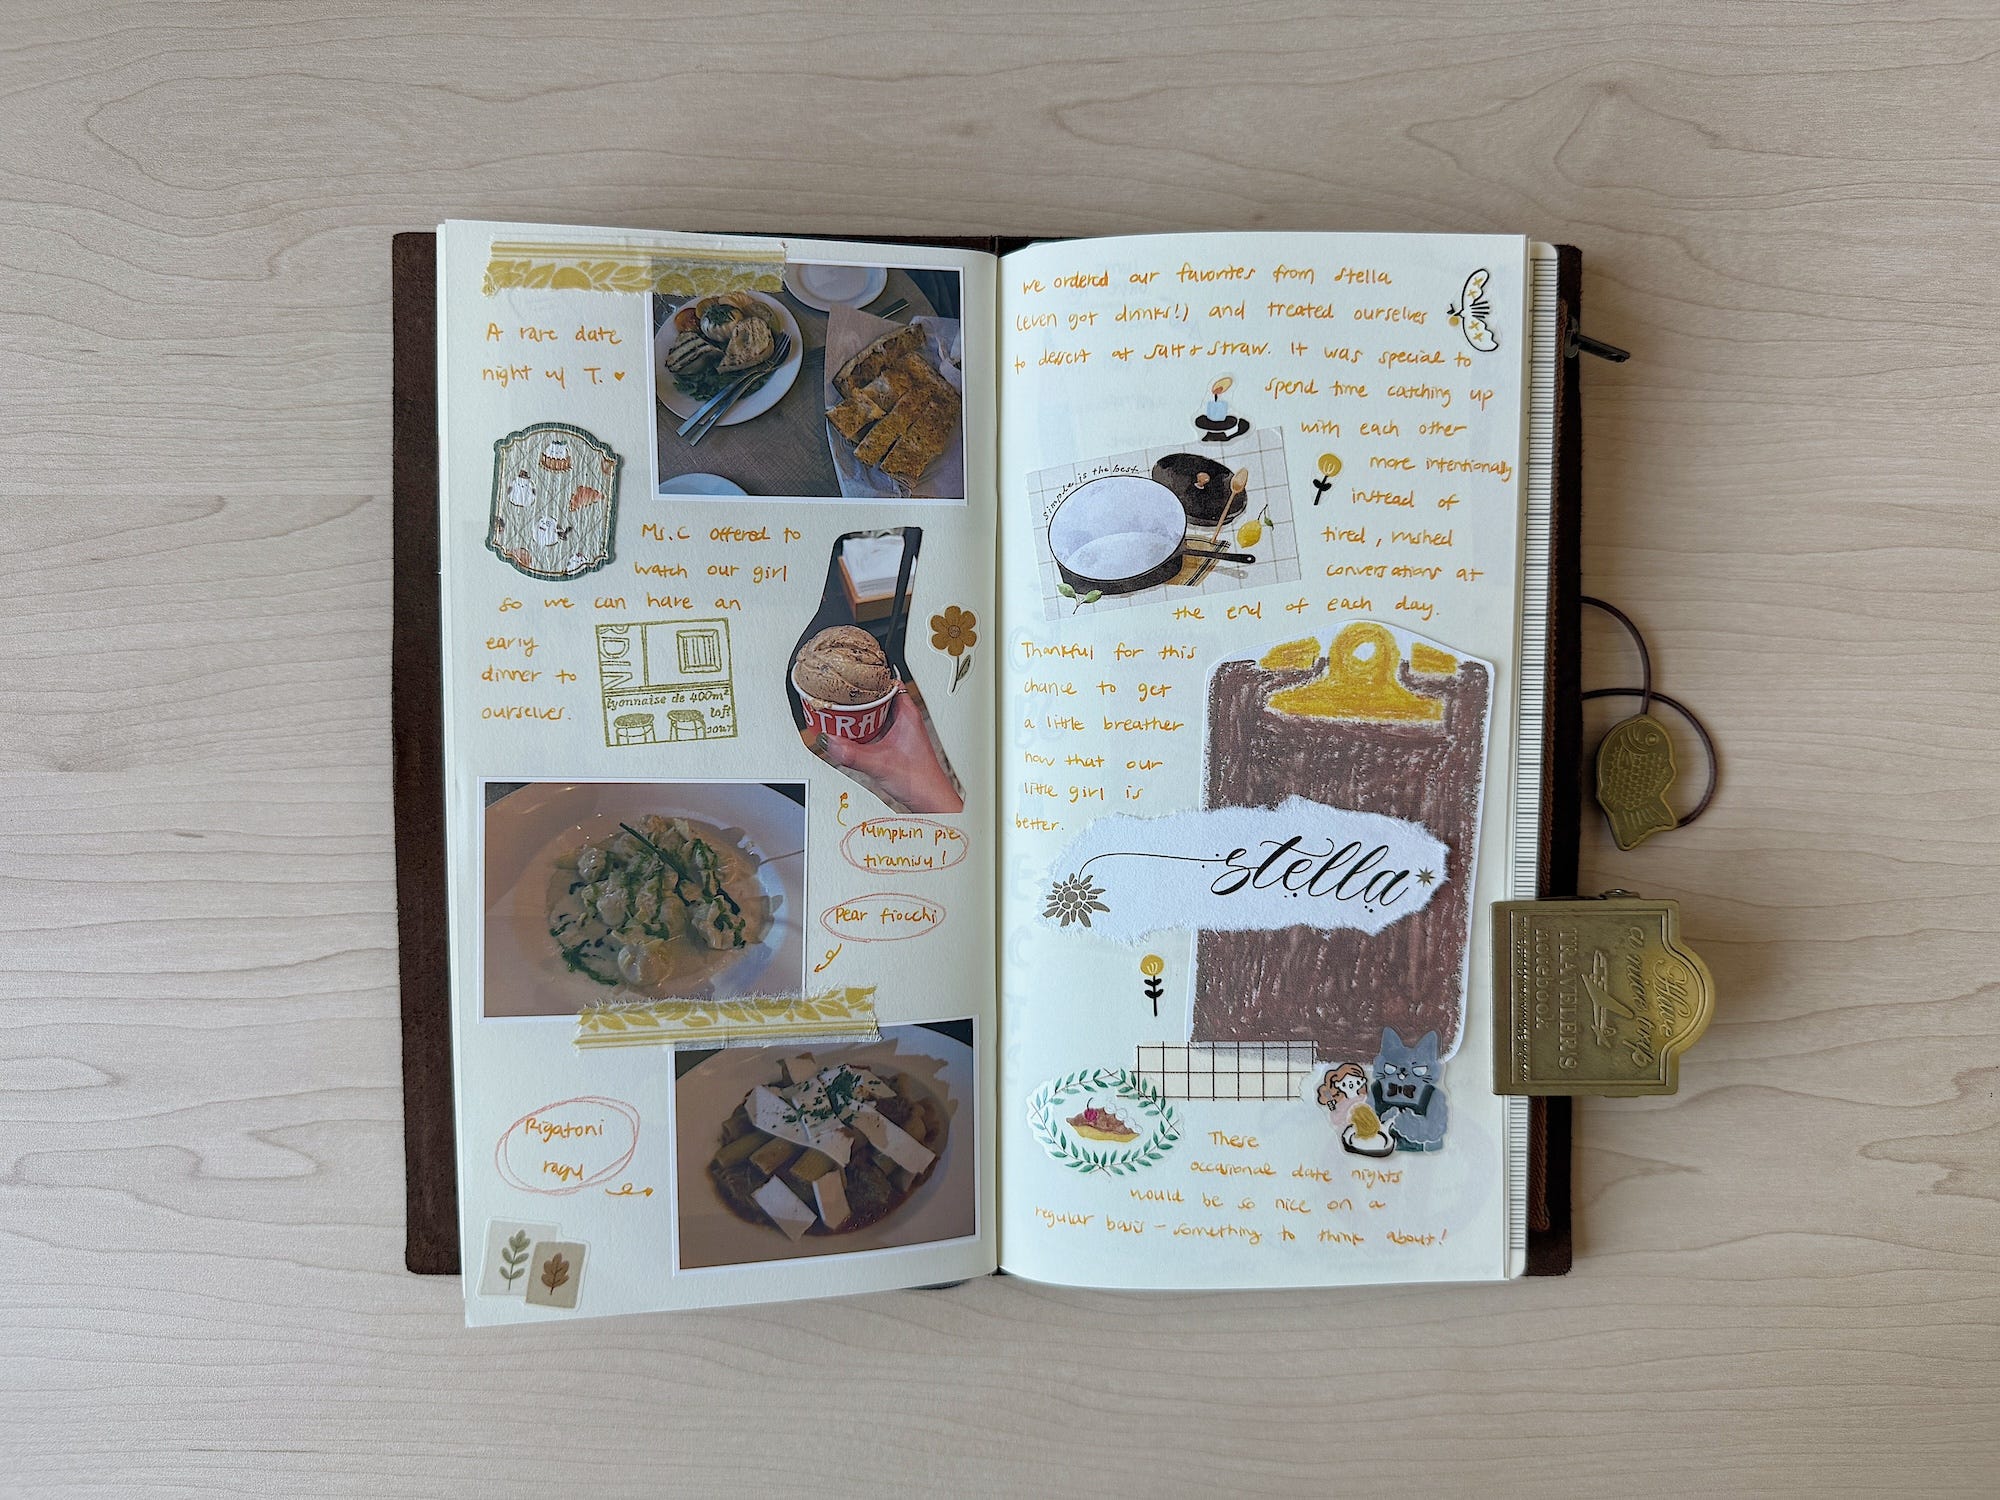 A rare date
night w/ T. ♥
Ms. C offered to
watch our girl
so we can have an
early
dinner to
ourselves.
RDIN
lyonnaise de 400m²
loft
cour
STRA
Pumpkin pie
tiramisu!
Pear fiocchi
Rigatoni
ragu
We ordered our favorites from Stella
(even got drinks!) and treated ourselves
to dessert at Salt & Straw. It was special to
spend time catching up
with each other
more intentionally
instead of
tired, rushed
conversations at
the end of each day.
simple is the best
Thankful for this
chance to get
a little breather
now that our
little girl is
better.
stella
These
occasional date nights
would be so nice on a
regular basis - something to think about!
Have a nice trip
TRAVELER'S
notebook